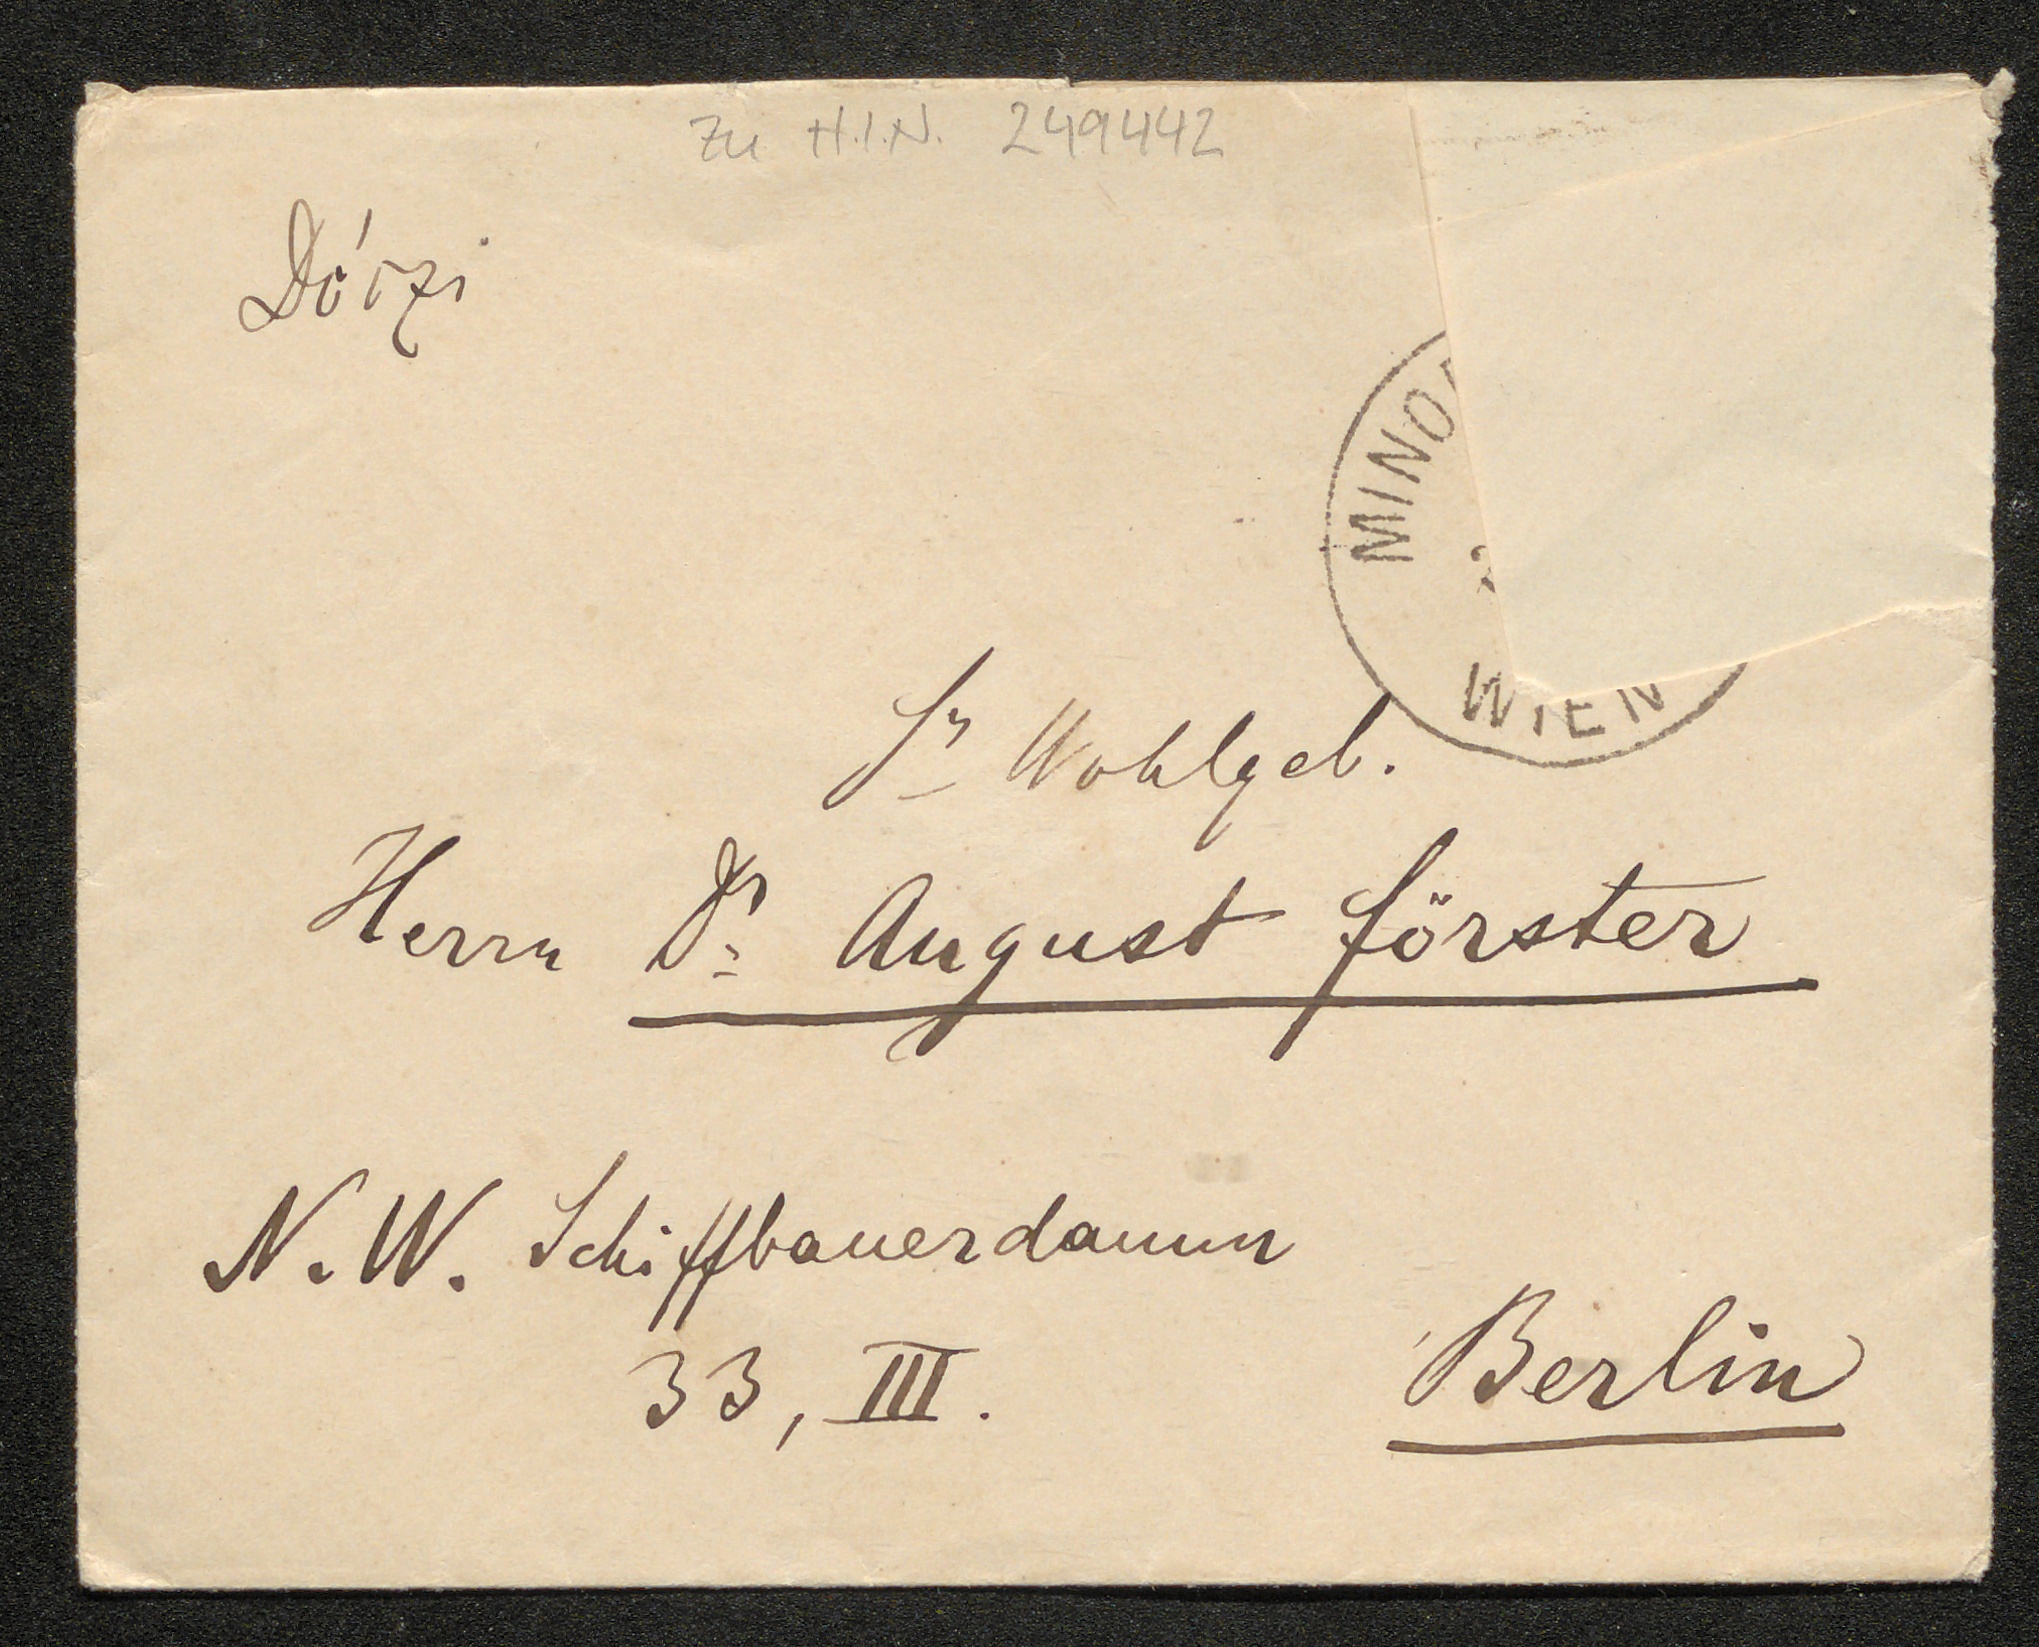 Zu H.I.N. 249442
Dóczi
MINO
WIEN
Sr Wohlgeb.
Herrn Dr. August Förster
N. W. Schiffbauerdamm
33, III.
Berlin